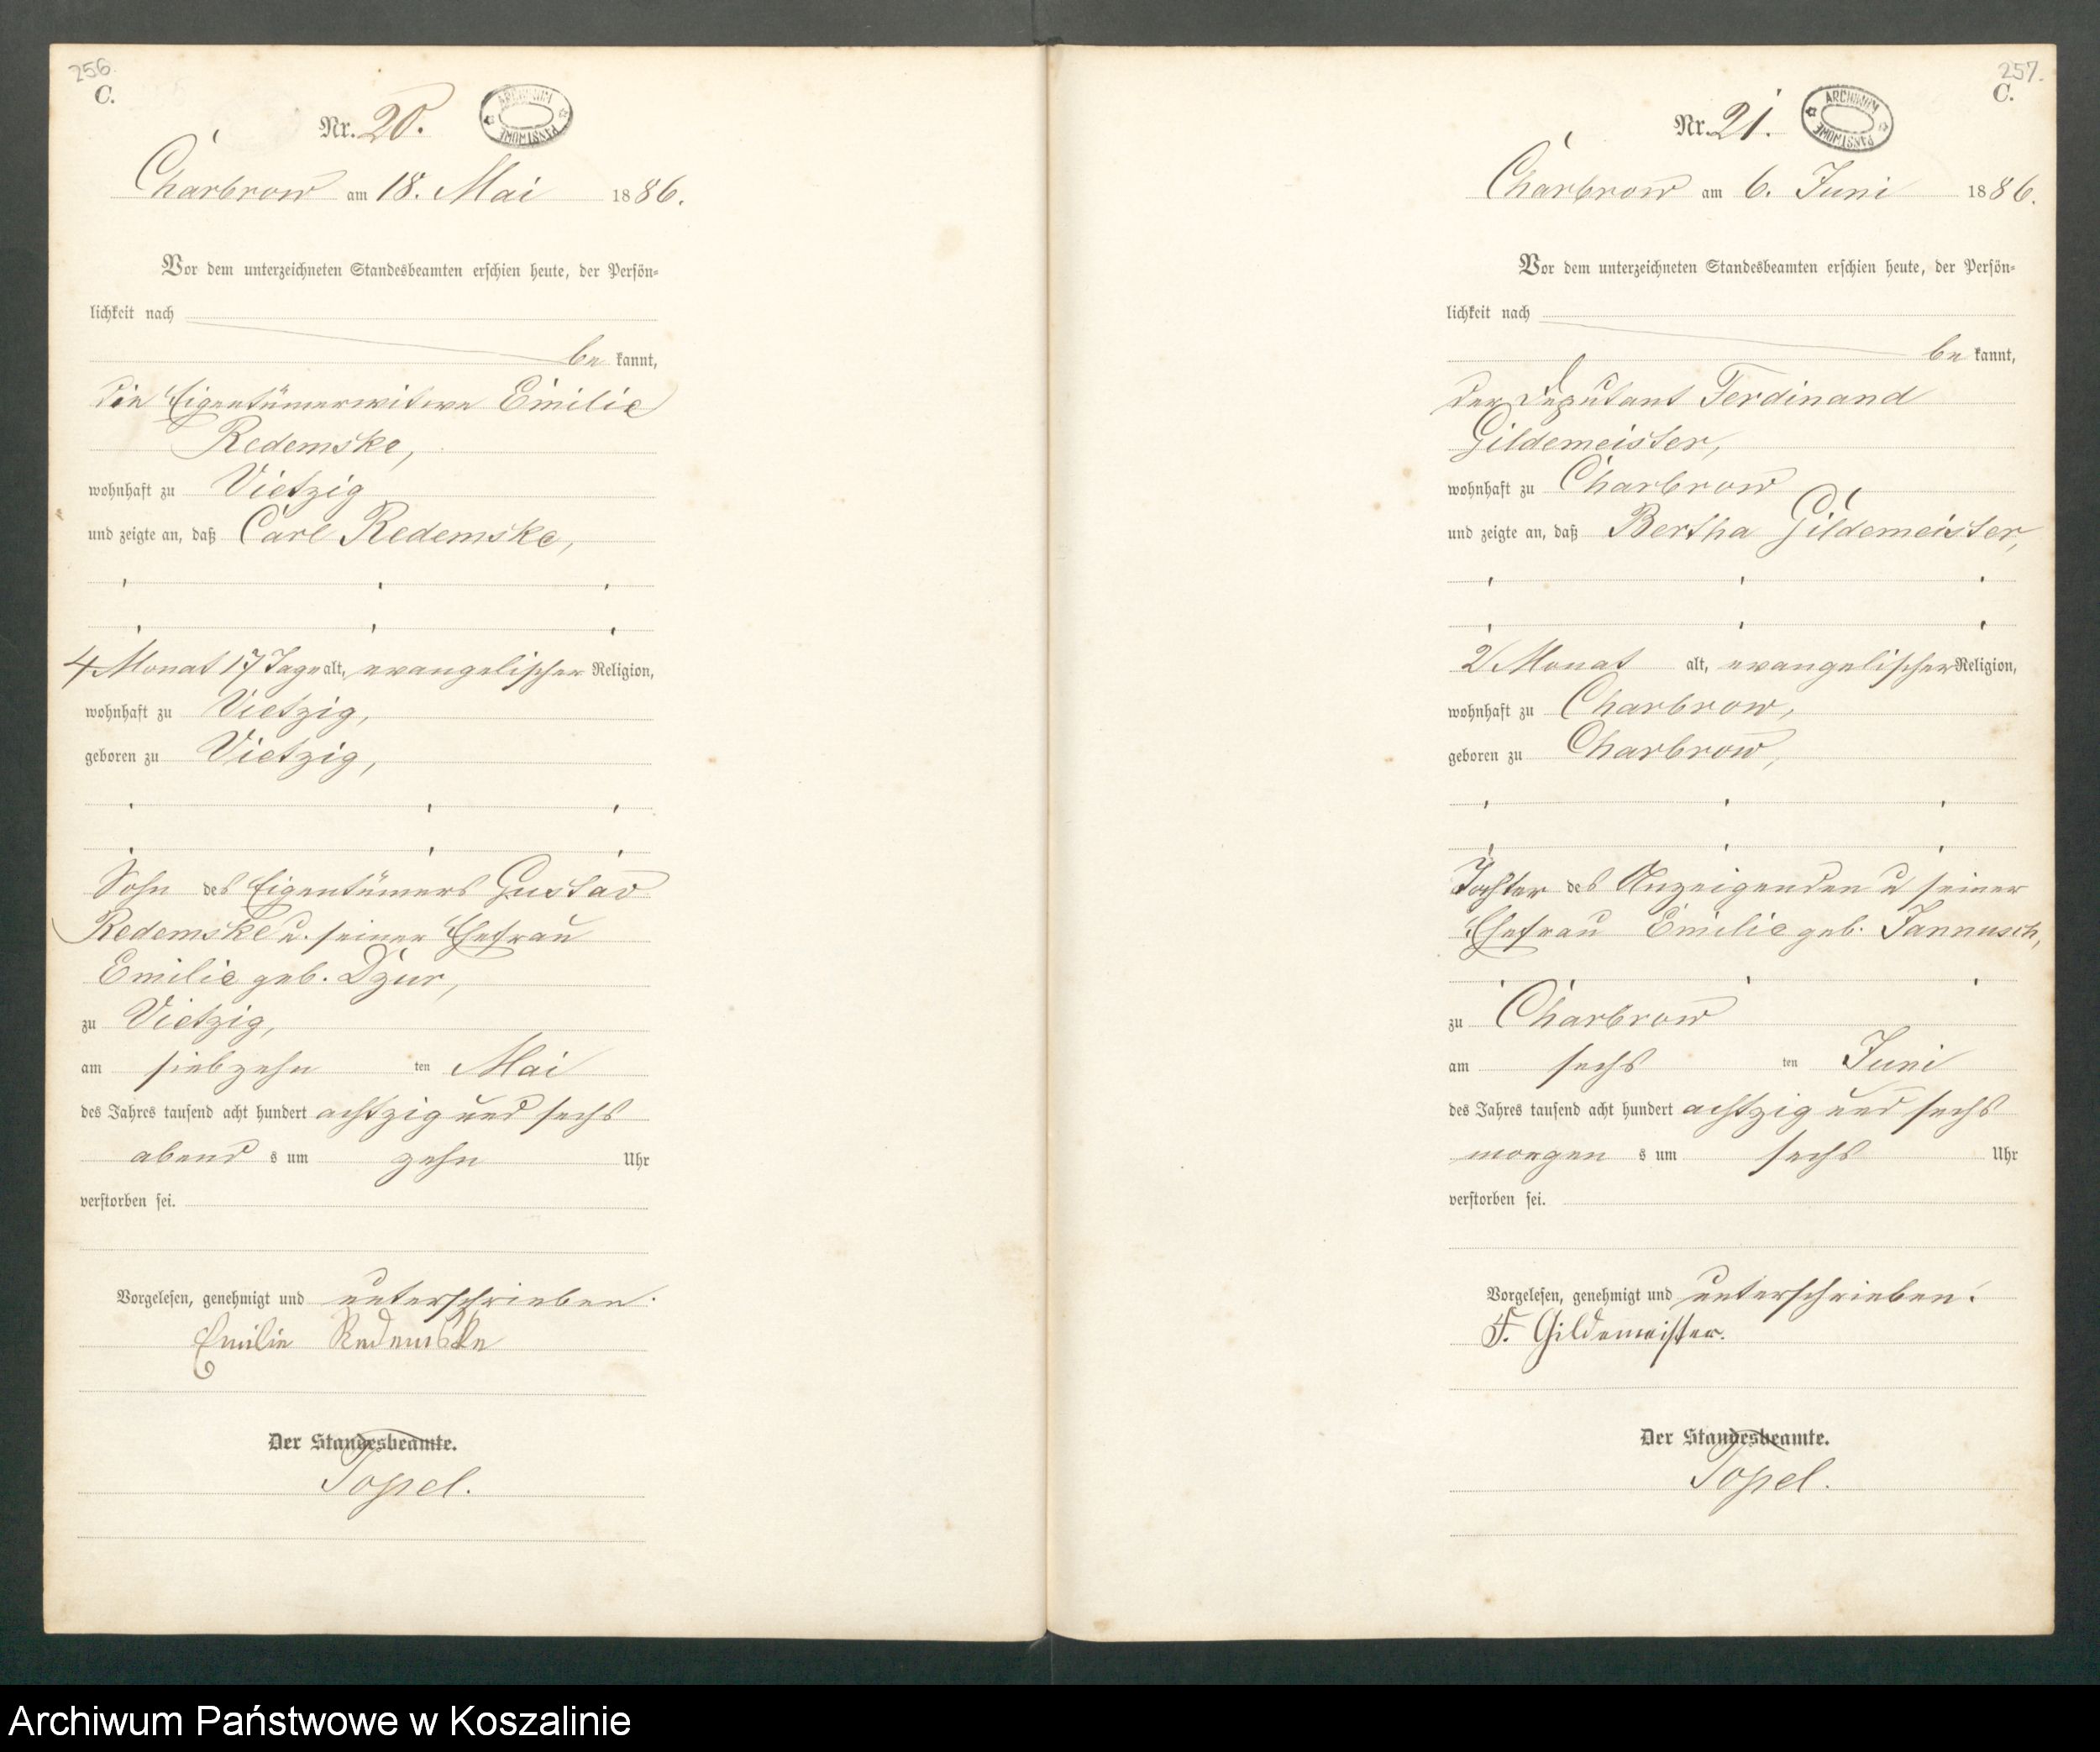 256.
C.
Nr. 20.
ARCHIWUM PAŃSTWOWE
Charbrow am 18. Mai 1886.
Vor dem unterzeichneten Standesbeamten erschien heute, der Persön=
lichkeit nach
be kannt,
die Eigentümerwitwe Emilie
Redemske,
wohnhaft zu Vietzig
und zeigte an, daß Carl Redemske,
4 Monat 17 Tage alt, evangelischer Religion,
wohnhaft zu Vietzig,
geboren zu Vietzig,
Sohn des Eigentümers Gustav
Redemske u. seiner Ehefrau
Emilie geb. Dzur,
zu Vietzig,
am siebzehn ten Mai
des Jahres tausend acht hundert achtzig und sechs
abend s um zehn Uhr
verstorben sei.
Vorgelesen, genehmigt und unterschrieben.
Emilie Redemske
Der Standesbeamte.
Topel.
257.
C.
Nr. 21.
ARCHIWUM PAŃSTWOWE
Charbrow am 6. Juni 1886.
Vor dem unterzeichneten Standesbeamten erschien heute, der Persön=
lichkeit nach
be kannt,
der Deputant Ferdinand
Gildemeister,
wohnhaft zu Charbrow
und zeigte an, daß Bertha Gildemeister,
2 Monat alt, evangelischer Religion,
wohnhaft zu Charbrow,
geboren zu Charbrow,
Tochter des Anzeigenden u seiner
Ehefrau Emilie geb. Jannusch,
zu Charbrow
am sechs ten Juni
des Jahres tausend acht hundert achtzig und sechs
morgen s um sechs Uhr
verstorben sei.
Vorgelesen, genehmigt und unterschrieben.
F. Gildemeister.
Der Standesbeamte.
Topel.
Archiwum Państwowe w Koszalinie